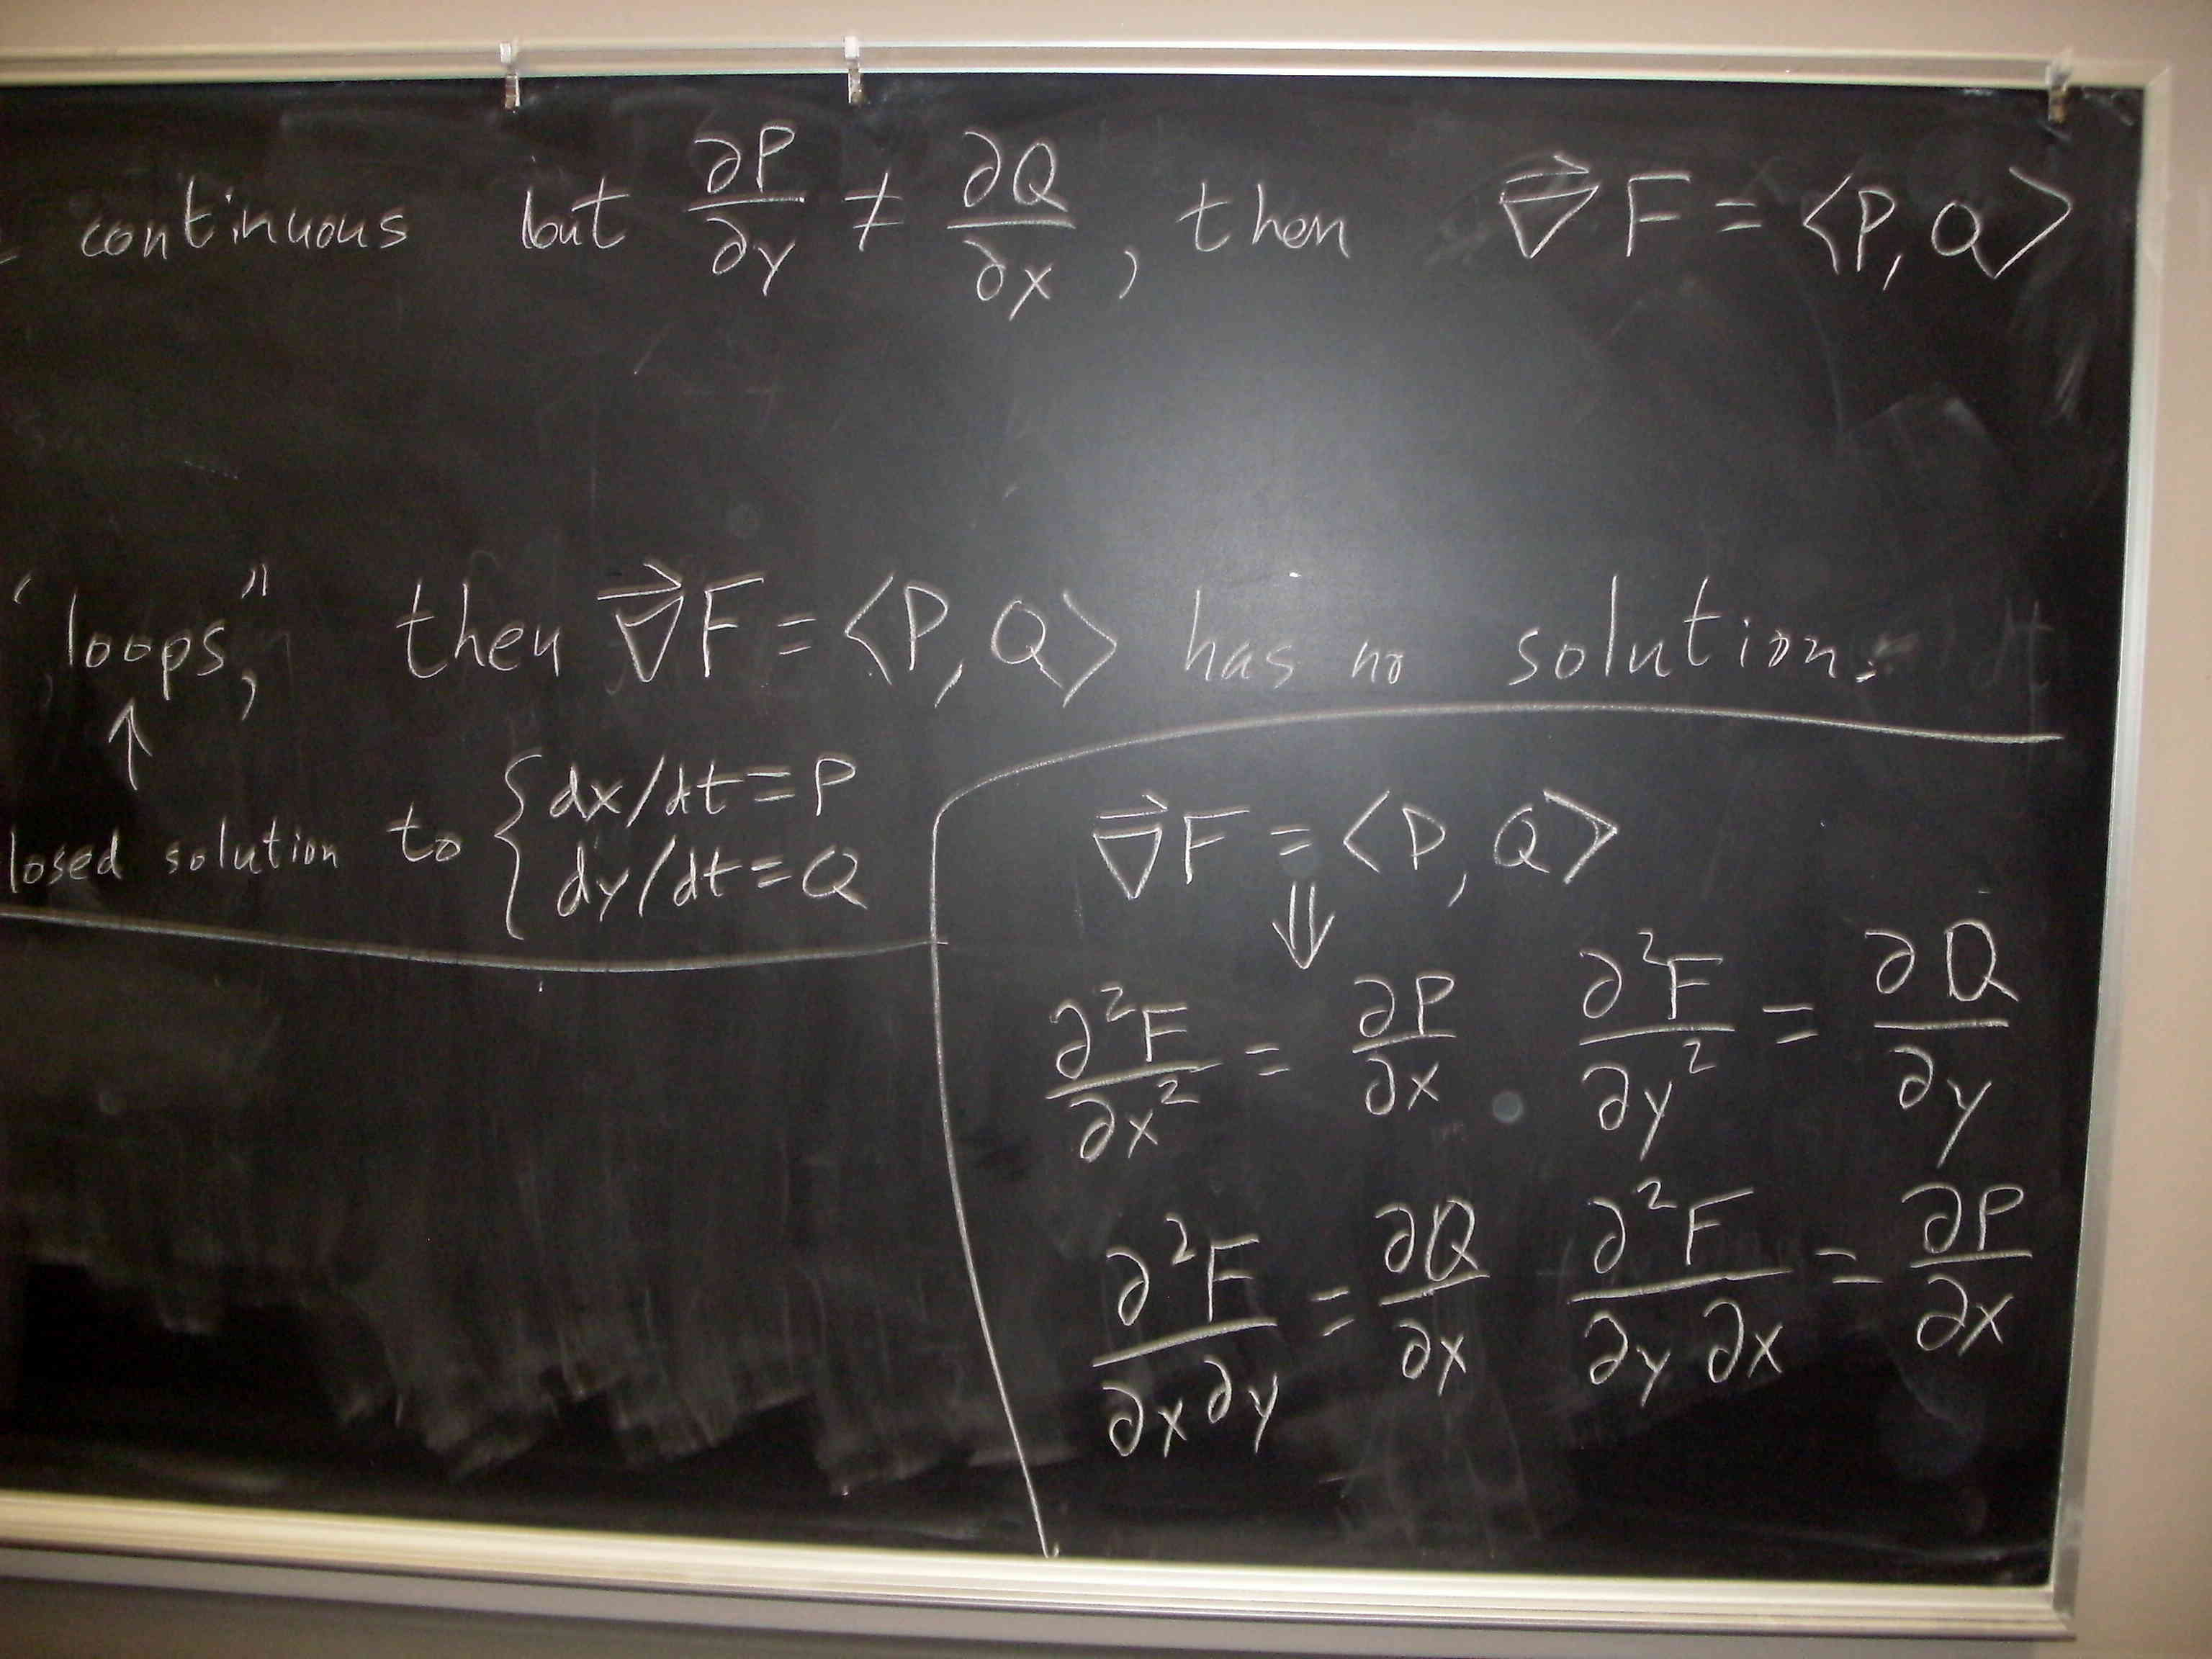 continuous but ∂P/∂y ≠ ∂Q/∂x, then ∇⃗F = ⟨P, Q⟩
"loops," then ∇⃗F = ⟨P, Q⟩ has no solution.
↑
losed solution to { dx/dt = P
dy/dt = Q
∇⃗F = ⟨P, Q⟩
⇓
∂²F/∂x² = ∂P/∂x ∂²F/∂y² = ∂Q/∂y
∂²F/∂x∂y = ∂Q/∂x ∂²F/∂y∂x = ∂P/∂x